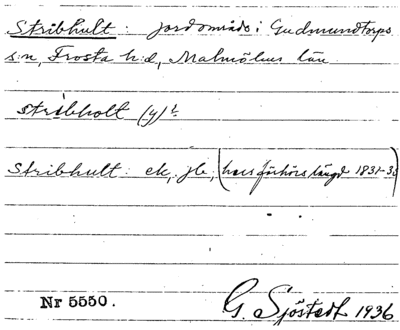 Stribhult: jordområde i Gudmundtorps
s:n, Frosta h:d, Malmöhus län
stribholt (y)
Stribhult: ek, jb, (husförhörslängd 1831-35)
Nr 5550.
G. Sjöstedt 1936